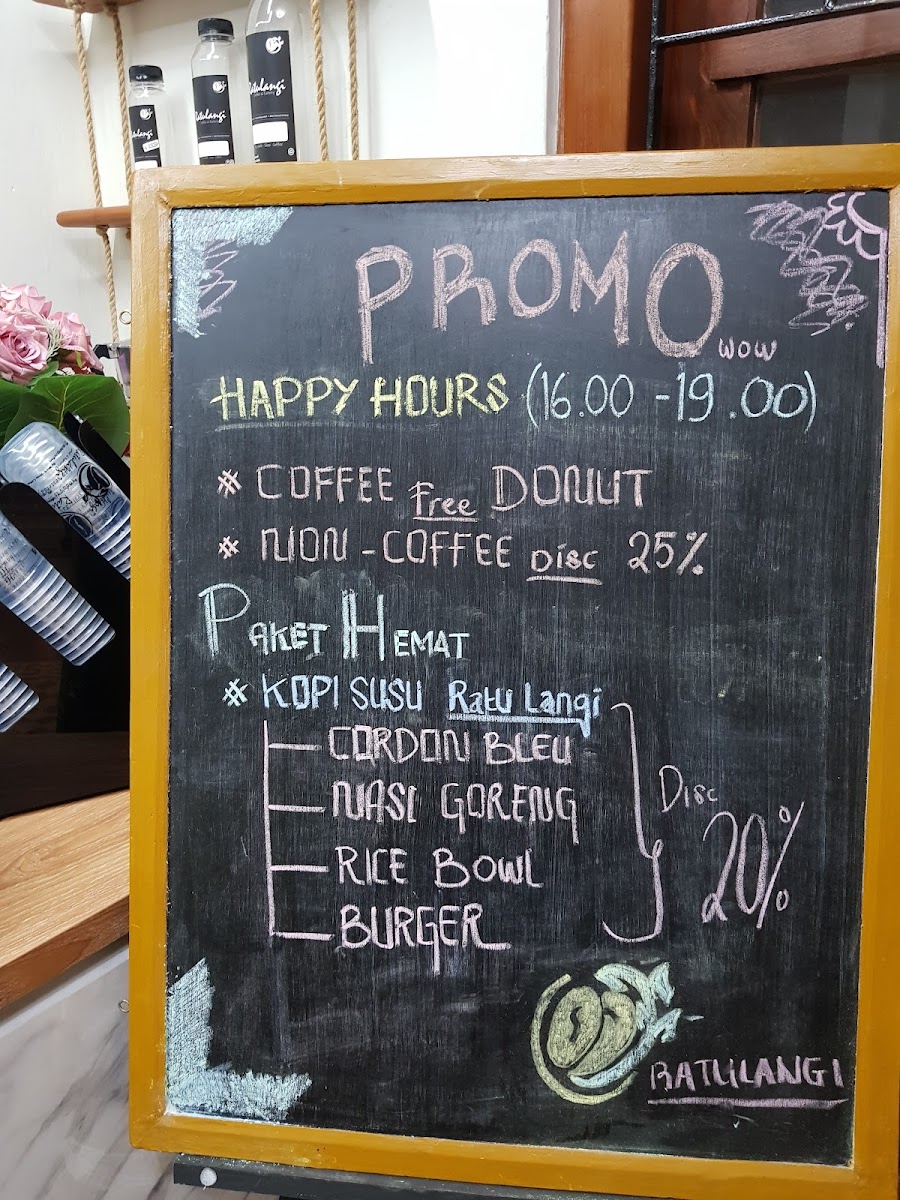 Ratulangi
Ratulangi
PROMO
WOW
HAPPY HOURS (16.00 - 19.00)
# COFFEE Free DONUT
# NON - COFFEE DISC 25%
PAKET HEMAT
# KOPI SUSU Ratu Langi
CORDON BLEU
NASI GORENG
RICE BOWL
BURGER
Disc
20%
RATULANGI